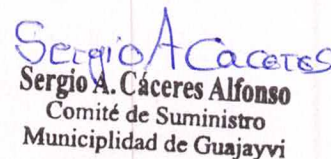 Sergio A Caceres
Sergio A. Cáceres Alfonso
Comité de Suministro
Municiplidad de Guajayvi